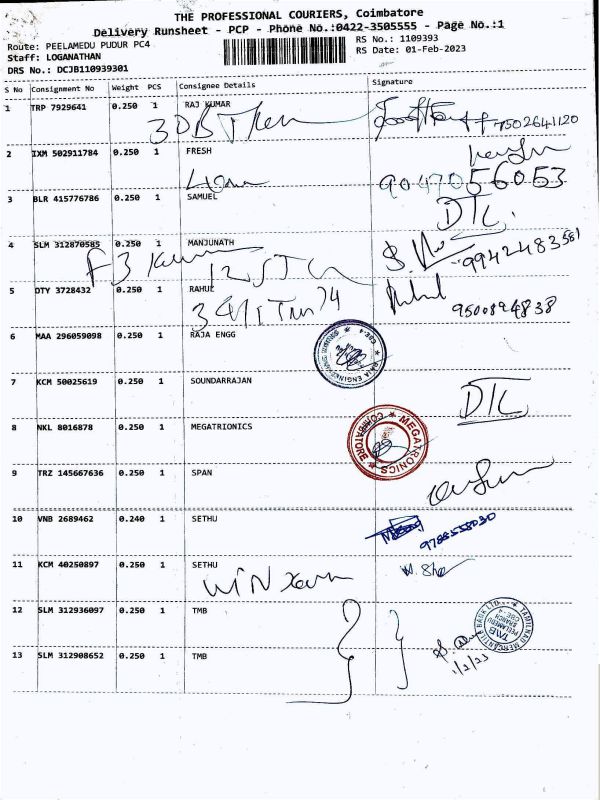 THE PROFESSIONAL COURIERS, Coimbatore
Delivery Runsheet - PCP - Phone No.:0422-3505555 - Page No.:1
Route: PEELAMEDU PUDUR PC4
RS No.: 1109393
Staff: LOGANATHAN
RS Date: 01-Feb-2023
DRS No.: DCJB110939301
S No Consignment No Weight PCS Consignee Details Signature
1 TRP 7929641 0.250 1 RAJ KUMAR
7502641120
2 IXM 502911784 0.250 1 FRESH
90470 56053
3 BLR 415776786 0.250 1 SAMUEL
DTC.
4 SLM 312870585 0.250 1 MANJUNATH
9942483581
5 DTY 3728432 0.250 1 RAHUL
Rahul
9500894838
6 MAA 296059098 0.250 1 RAJA ENGG
7 KCM 50025619 0.250 1 SOUNDARRAJAN
DTC
8 NKL 8016878 0.250 1 MEGATRIONICS
MEGATRONICS
COIMBATORE
9 TRZ 145667636 0.250 1 SPAN
10 VNB 2689462 0.240 1 SETHU
9788558030
11 KCM 40250897 0.250 1 SETHU
WIN
12 SLM 312936097 0.250 1 TMB
TAMILNAD MERCANTILE BANK LTD
TMB
PEELAMEDU
BRANCH
13 SLM 312908652 0.250 1 TMB
1/2/23